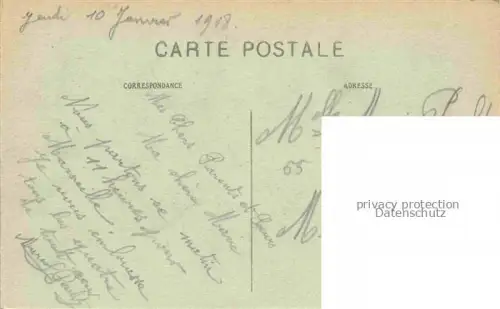 Jeudi 10 Janvier 1918.
CARTE POSTALE
CORRESPONDANCE
ADRESSE
Mes Chers Parents et Sœurs
Ma chère Marie
Nous partons ce matin
à 11 heures pour
Marseille.
Je vous embrasse
tous les quatre
Melle
55
M
privacy protection
Datenschutz